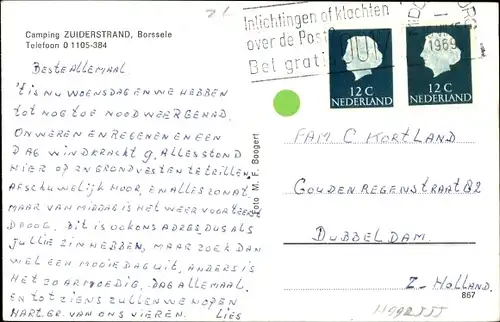 21
Camping ZUIDERSTRAND, Borssele
Telefoon 0 1105-384
Inlichtingen of klachten
over de Post?
Bel gratis 0017
1969
12 C
NEDERLAND
12 C
NEDERLAND
BESTE ALLEMAAL
'T IS NU WOENSDAG EN WE HEBBEN
TOT NOG TOE NOODWEER GEHAD.
ONWEREN EN REGENEN EN EEN
DAG WINDKRACHT 9. ALLES STOND
HIER OP ZN GRONDVESTEN TE TRILLEN.
AFSCHUWELIJK HOOR, EN ALLES ZO NAT.
MAAR VAN MIDDAG IS HET WEER VOOR 'T EERST
DROOG. DIT IS OOK ONS ADRES DUS ALS
JULLIE ZIN HEBBEN, MAAR ZOEK DAN
WEL EEN MOOIE DAG UIT, ANDERS IS
HET ZO ARMOEDIG. DAG ALLEMAAL.
EN TOT ZIENS ZULLEN WE HOPEN
HART. GR. VAN ONS VIEREN. LIES
Foto M. F. Boogert
FAM C KORTLAND
GOUDEN REGENSTRAAT 82
DUBBELDAM.
Z-HOLLAND.
867